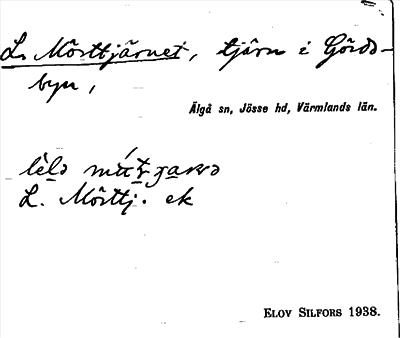 L. Mörttjärnet, tjärn i Görds-
byn,
Älgå sn, Jösse hd, Värmlands län.
L. Mörttj. ek
ELOV SILFORS 1938.